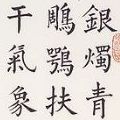 銀燭青
鵰鶚扶
干氣象